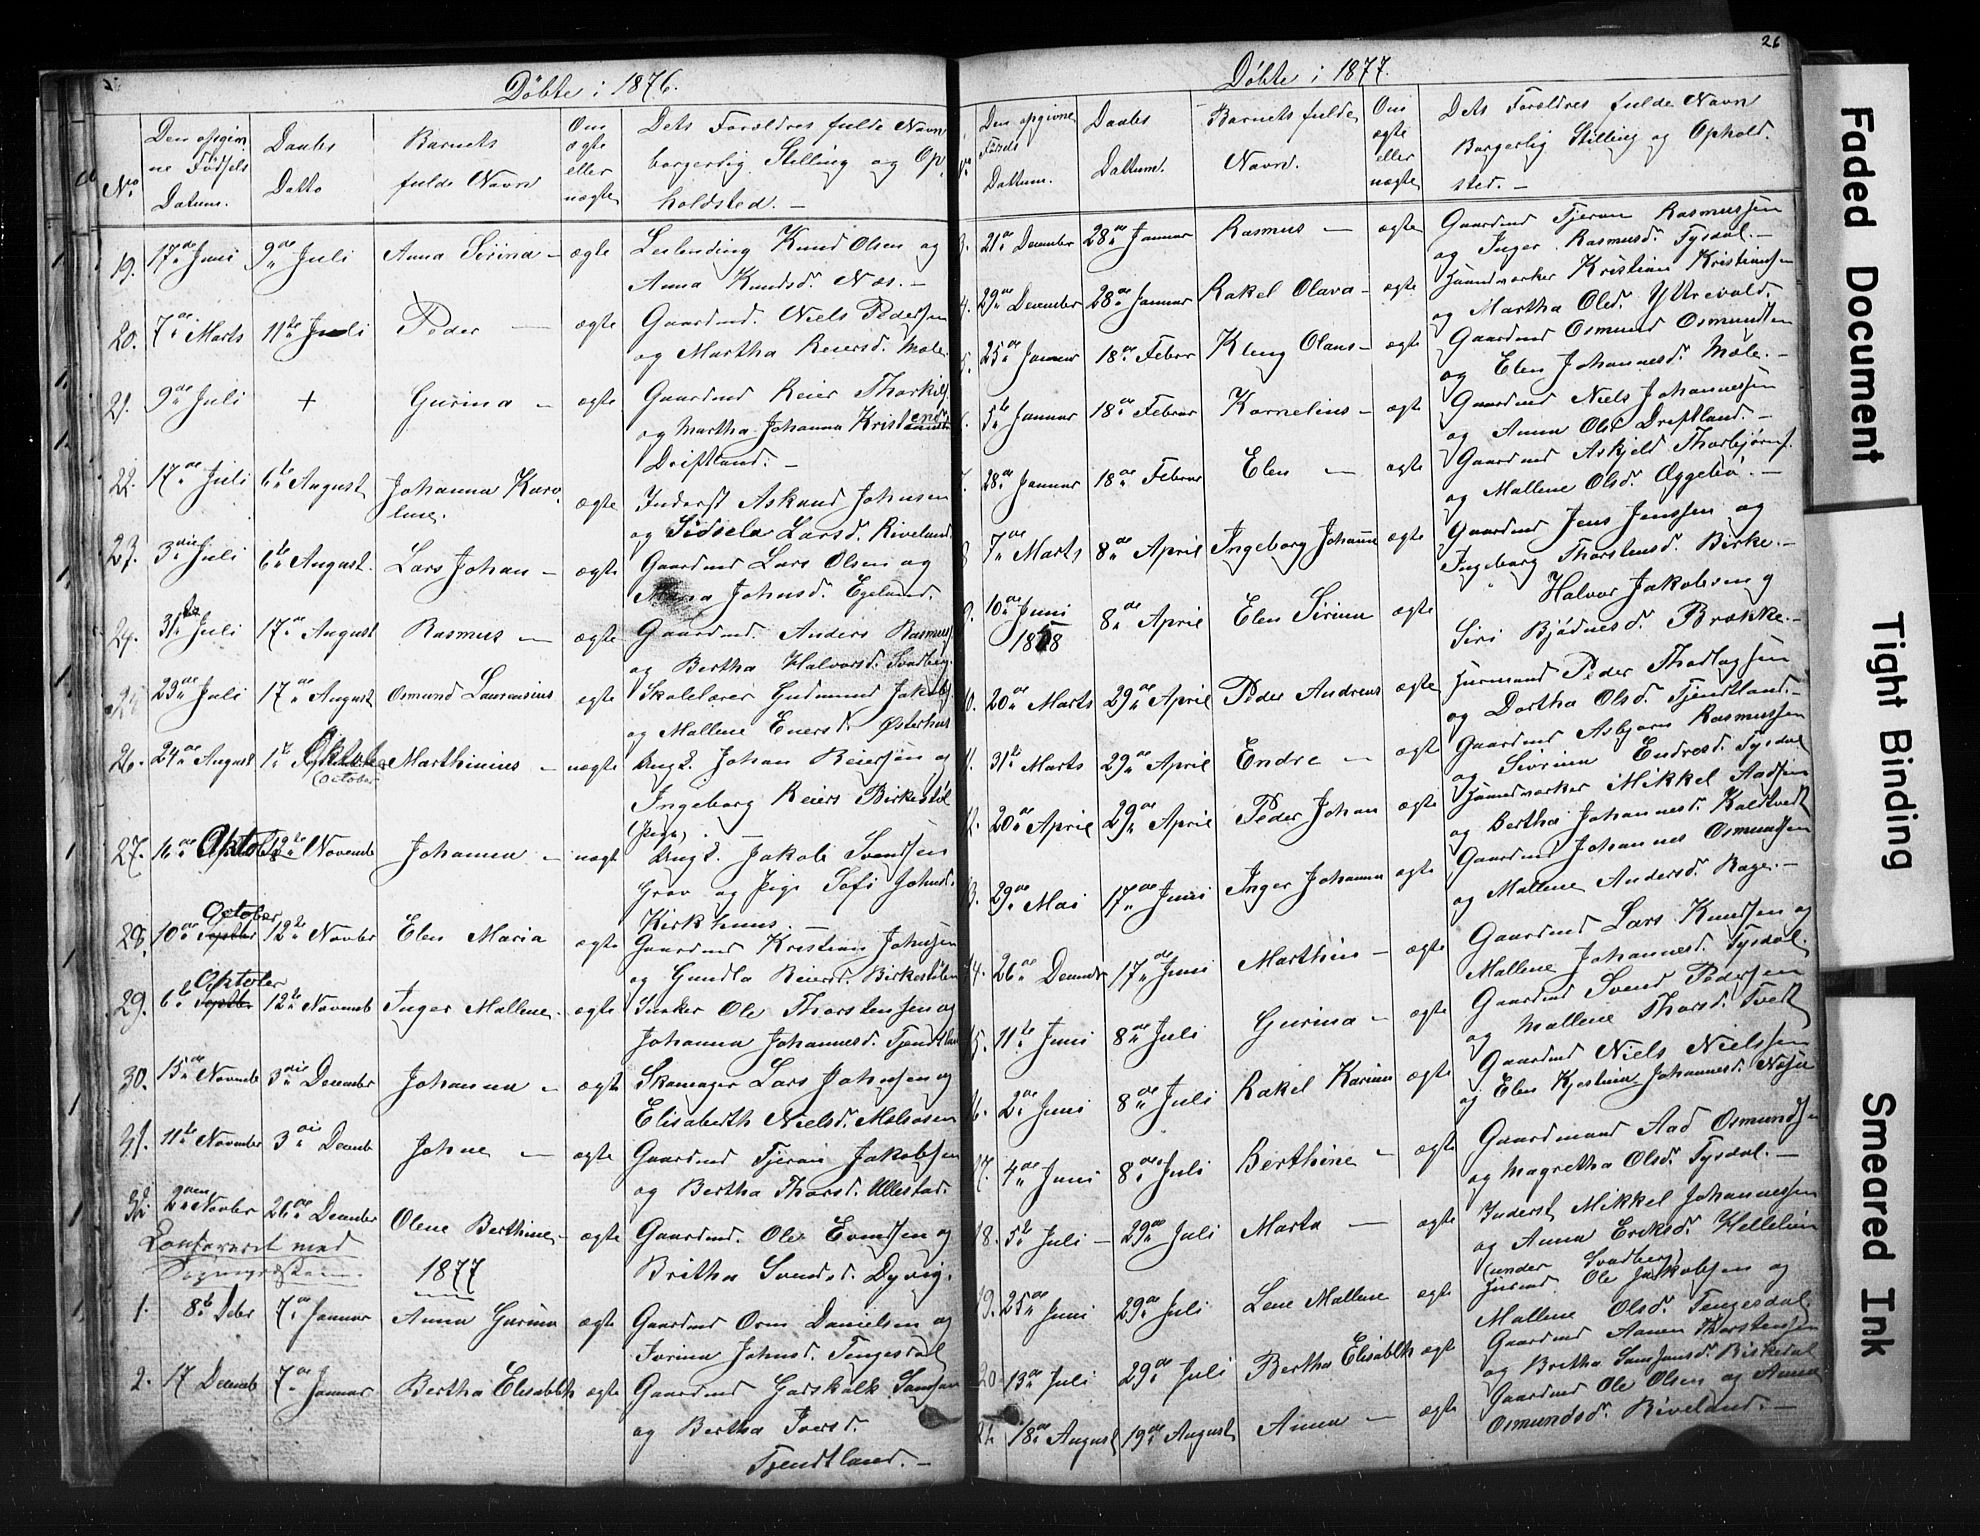 Døbte i 1876.
No
Den opgiv-
ne Fødsels
Datum.
Daabs
Datto
Barnets
fulde Navn
Om
ægte
eller
uægte
Dets Forældres fulde Navn
borgerlig Stilling og Op
holdsted. —
19. 17de Juni 9de Juli Anna Sirina — ægte Leilending Knud Olsen og
Anna Knudsd. Næs. —
20. 7de Marts 11te Juli Peder — ægte Gaardmd. Niels Pedersen
og Martha Reiersd. Mæle.
21. 9de Juli + Gurina — ægte Gaardmd Reier Thorkils.
og Martha Johanna
Driftland. —
22. 17de Juli 6te August Johanna Karo
line. ægte Inderst Askaud Johnsen
og Sidsela Larsd. Riveland.
23. 3die Juli 6te August. Lars Johan — ægte Gaardmd Lars Olsen og
Maria Johnsd. Egeland.
24. 31te Juli 17de August Rasmus — ægte Gaardmd. Anders Rasmus.
og Bertha Halvorsd. Svadberg.
25 23de Juli 17de August Osmund Laurensius ægte Skolelærer Gudmund Jakobs.
og Mallene Enersd. Østerhus
26. 24de August 1te Oktober
(October Marthinius — uægte Ungk. Johan Reiersøn og
Ingeborg Reiers Birkestøl
(Pige). —
27. 16de Oktob 12te Novemb Johanna — uægt Ungk. Jakob Svendsen
Grov og Pige Sofi Johnsd.
Kirkhuus. —
28. 10de October 12te Novber Elen Maria ægte Gaardmd Kristian Johnsen
og Gundla Reiersd. Birkestølen
29. 6te Oktober 12te Novemb Inger Mallene — ægte Ole Thorstensen og
Johanna Johannesd. Tjendtland
30. 15de Novemb 3die December Johanna — ægte Skomager Lars Johnsen og
Elisabeth Nielsd.
31. 11te November 3die Decemb Johne — ægte Gaardmd Tjeran Jakobsen
og Bertha Thorsd. Ullestad.
32 2den Novber 26de December Olene Berthine — ægte Gaardmd. Ole Evindsen og
Britha Svendsd. Dyvig.
Konfereret med
1877
1. 8te Debr 7de Januar Anna Gurina ægte Gaardmd Orm Danielsen og
Johnsd. Tengesdal
2. 17 Decemb 7de Januar Bertha Elisabeth ægte Gaardmd Samson
og Bertha Iversd.
Tjendtland. —
26
Døbte i 1877.
Den opgivne
Fødsels
Dattum.
Daabs
Dattum.
Barnets fulde
Navn.
Om
ægte
eller
uægte
Dets Forældres fulde Navn
Borgerlig Stilling og Ophold.
sted. —
3. 21de December 28de Januar Rasmus — ægte Gaardmd Tjeran Rasmussen
og Inger Rasmusd. Tysdal. —
4. 29de December 28de Januar Rakel Olava — ægte Haandverker Kristian Kristiansen
og Martha Olsd.
5. 25de Januar 18de Februar Kleng Olaus — ægte Gaardmd Osmund Osmundsen
og Elen Johannesd. Mæle. —
5te Januar 18de Februar Kornelius — ægte Gaardmd Niels Johannessen
og Anna Olsd Driftland. —
7. 28de Januar 18de Februar Elen — ægte Gaardmd Askjeld Thorbjørns.
og Mallene Olsd. Eggebø. —
8 7de Marts 8de April Ingeborg Johanne ægte Gaardmd Jens Jenssen og
Ingeborg Thorstensd. Birke. —
9. 10de Juni
1868 8de April Elen Sirina ægte " Halvor Jakobsen og
Siri Bjødnesd. Brække. —
10. 20de Marts 29de April Peder Andreas ægte Huusmand Peder Thodlagsen
og Dortha Olsd. Tjendtland. —
11. 31te Marts 29de April Endre — ægte Gaardmd Asbjørn Rasmussen
og Sivrina Endresd. Tysdal
12. 20de April 29de April Peder Johan ægte Haandverker Mikkel Aadsen
og Bertha Johannesd. Kaldtvedt
13. 29de Mai 17de Juni Inger Johanna ægte Gaardmd Johannes Osmundsen
og Mallene Andersd. Rage. —
14. 26de 17de Juni Marthin — ægte Gaardmd Lars Knudsen og
Mallene Johannesd. Tysdal.
15. 11te Juni 8de Juli Gurina — ægte Gaardmd Svend Pedersen
og Mallene Thorsd. Tvedt
16. 2de Juni 8de Juli Rakel Karine ægte Gaardmd Niels Nielssen
og Elen Kjestina Johannesd.
17. 4de Juni 8de Juli Berthine — ægte Gaardmand Aad Osmundsen
og Magretha Olsd. Tysdal. —
18. 5te Juli — 29de Juli Marta — ægte Inderst Mikkel Johannessen
og Anna Eriksd.
(under Svadberg)
19. 25de Juni 29de Juli Lene Mallene ægte Ole Jakobsen og
Mallene Olsd. Tengesdal.
20 13de Juli 29de Juli Bertha Elisabeth ægte Gaardmd Aanen Thorstensen
og Britha Samsonsd. Birkedal
21 18de August 19de August Anna — ægte Gaardmd Ole Olsen og Anna
Osmundsd. Riveland. —
Faded Document
Tight Binding
Smeared Ink